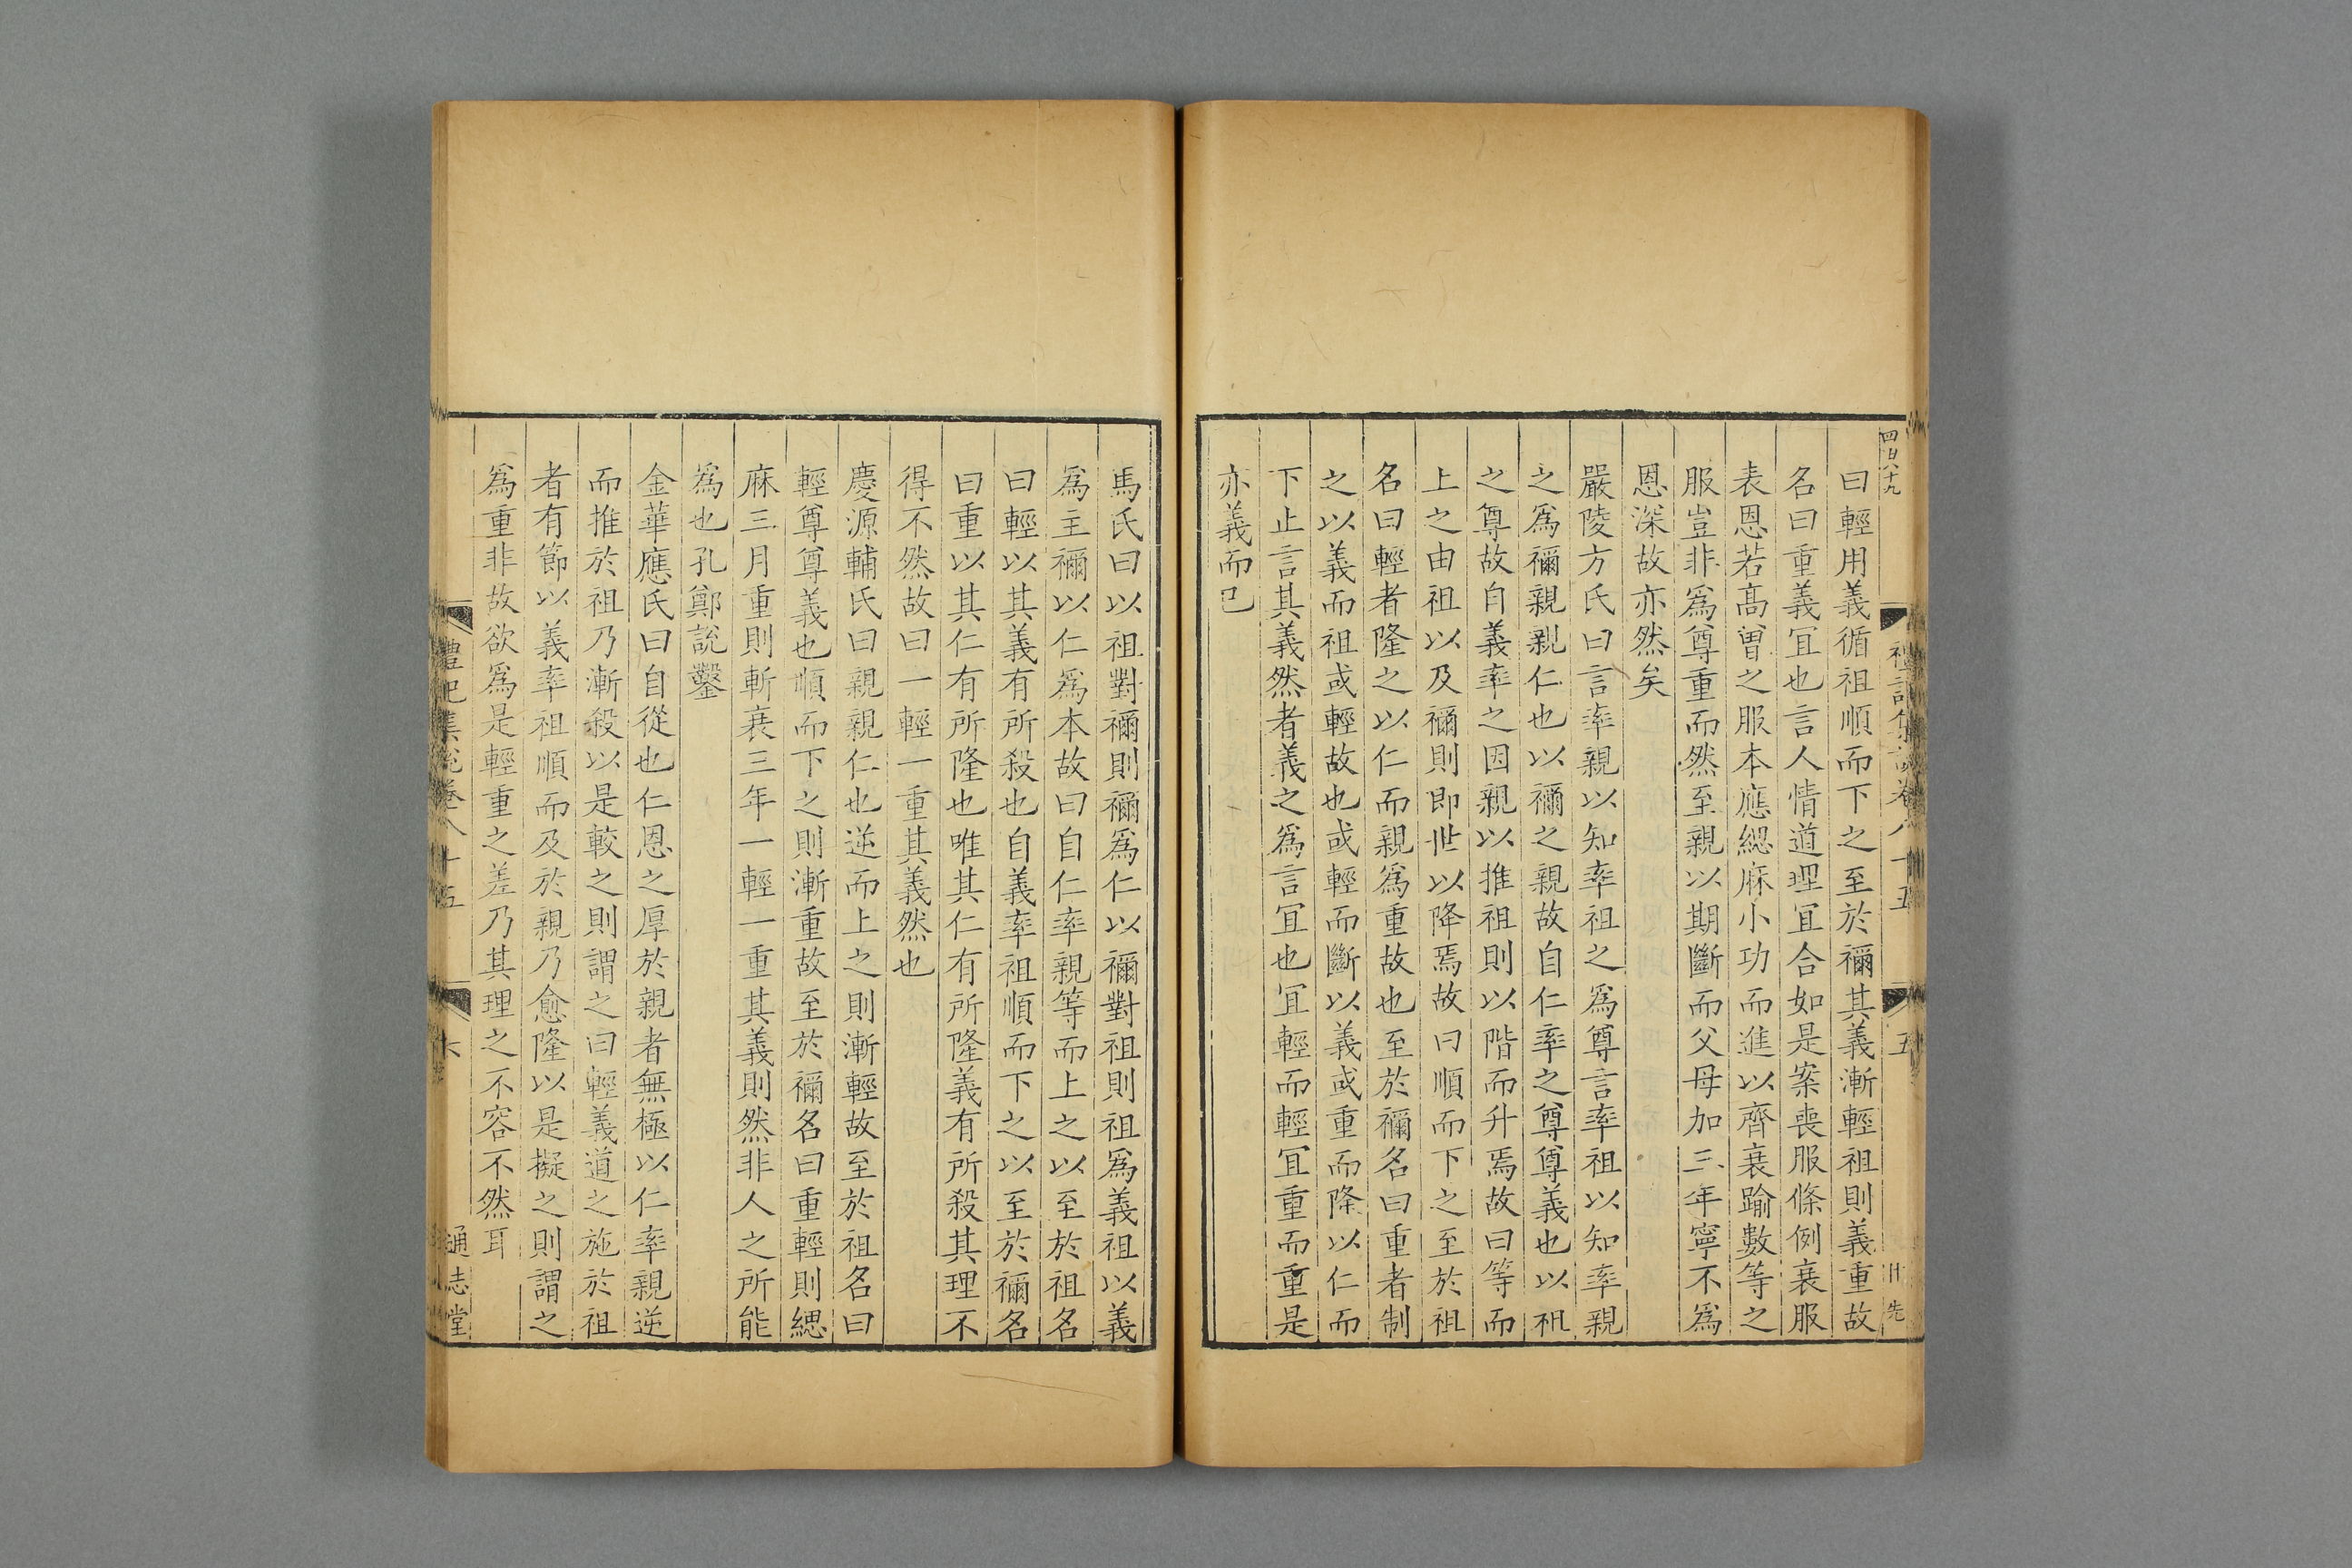 四百八十九
禮記集說卷八十五
五
先
曰輕用義循祖順而下之至於禰其義漸輕祖則義重故
名曰重義冝也言人情道理冝合如是案喪服條例衰服
表恩若髙曽之服本應緦麻小功而進以齊衰踰數等之
服豈非爲尊重而然至親以期斷而父母加三年寧不爲
恩深故亦然矣
嚴陵方氏曰言率親以知率祖之爲尊言率祖以知率親
之爲禰親親仁也以禰之親故自仁率之尊尊義也以祖
之尊故自義率之因親以推祖則以階而升焉故曰等而
上之由祖以及禰則即世以降焉故曰順而下之至於祖
名曰輕者隆之以仁而親爲重故也至於禰名曰重者制
之以義而祖或輕故也或輕而斷以義或重而降以仁而
下止言其義然者義之爲言冝也冝輕而輕冝重而重是
亦義而已
馬氏曰以祖對禰則禰爲仁以禰對祖則祖爲義祖以義
爲主禰以仁爲本故曰自仁率親等而上之以至於祖名
曰輕以其義有所殺也自義率祖順而下之以至於禰名
曰重以其仁有所隆也唯其仁有所隆義有所殺其理不
得不然故曰一輕一重其義然也
慶源輔氏曰親親仁也逆而上之則漸輕故至於祖名曰
輕尊尊義也順而下之則漸重故至於禰名曰重輕則緦
麻三月重則斬衰三年一輕一重其義則然非人之所能
爲也孔鄭說鑿
金華應氏曰自從也仁恩之厚於親者無極以仁率親逆
而推於祖乃漸殺以是較之則謂之曰輕義道之施於祖
者有節以義率祖順而及於親乃愈隆以是擬之則謂之
爲重非故欲爲是輕重之差乃其理之不容不然耳
禮記集說卷八十五
六
通志堂